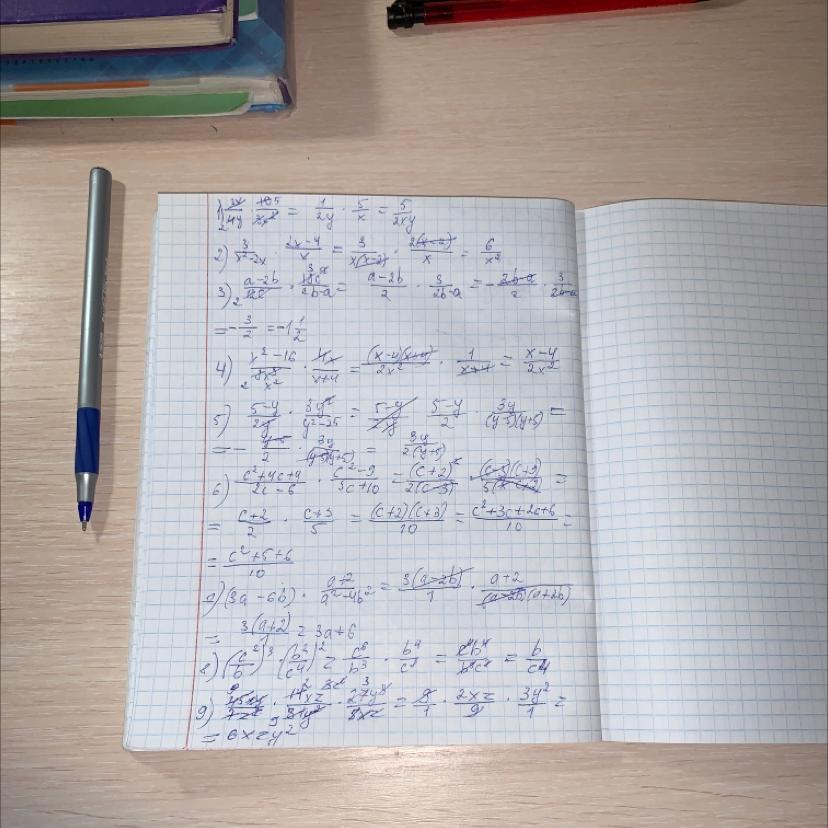 1) 3x/4y · 105/3x² = 1/2y · 5/x = 5/2xy
2) 3/x²-2x · 2x-4/x = 3/x(x-2) · 2(x-2)/x = 6/x²
3) a-2b/2 · 3/2b-a = a-2b/2 · 3/2b-a = -2b-a/2 · 3/2b-a
= -3/2 = -1 1/2
4) x²-16/8x³ · 4x/x+4 = (x-4)(x+4)/2x² · 1/x+4 = x-4/2x²
5) 5-y/2y · 3y²/y²-25 = 5-y/2 · 3y/(y-5)(y+5) =
= - y-5/2 · 3y/(y-5)(y+5) = 3y/2(y+5)
6) c²+4c+4/2c-6 · c²-9/5c+10 = (c+2)²/2(c-3) · (c-3)(c+3)/5(c+2) =
= c+2/2 · c+3/5 = (c+2)(c+3)/10 = c²+3c+2c+6/10 =
= c²+5+6/10
(3a-6b) · a+2/a²-4b² = 3(a-2b)/1 · a+2/(a-2b)(a+2b)
= 3(a+2)/1 = 3a+6
8) (c²/b)³ · (b²/c⁴)² = c⁶/b³ · b⁴/c⁸ = b/c
9) 14xz · 27y = 1 · 2xz/9 · 3y²/1 =
= 6xzy²